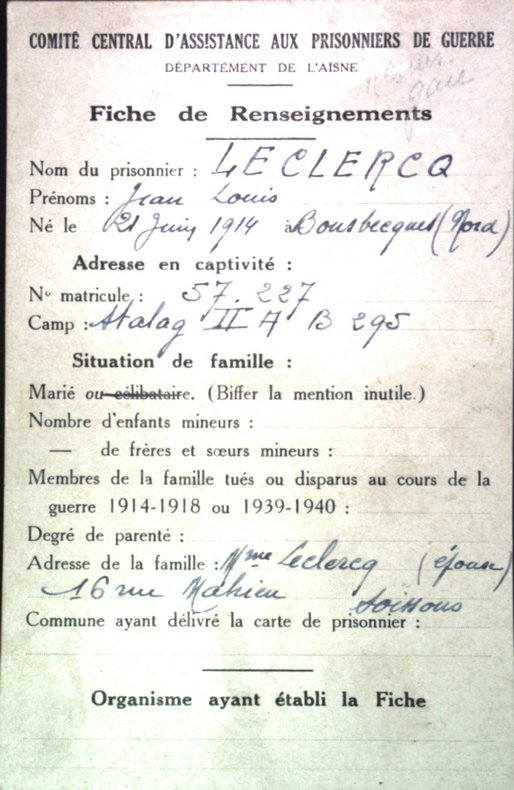 COMITÉ CENTRAL D'ASSISTANCE AUX PRISONNIERS DE GUERRE
DÉPARTEMENT DE L'AISNE
gare
Fiche de Renseignements
Nom du prisonnier : LECLERCQ
Prénoms : Jean Louis
Né le 21 Juin 1914 à Bousbecques (Nord)
Adresse en captivité :
No matricule : 57.227
Camp : Stalag II A B 295
Situation de famille :
Marié ou célibataire. (Biffer la mention inutile.)
Nombre d'enfants mineurs :
— de frères et sœurs mineurs :
Membres de la famille tués ou disparus au cours de la
guerre 1914-1918 ou 1939-1940 :
Degré de parenté :
Adresse de la famille : Mme Leclercq (épouse)
16 rue Mahieu Soissons
Commune ayant délivré la carte de prisonnier :
Organisme ayant établi la Fiche